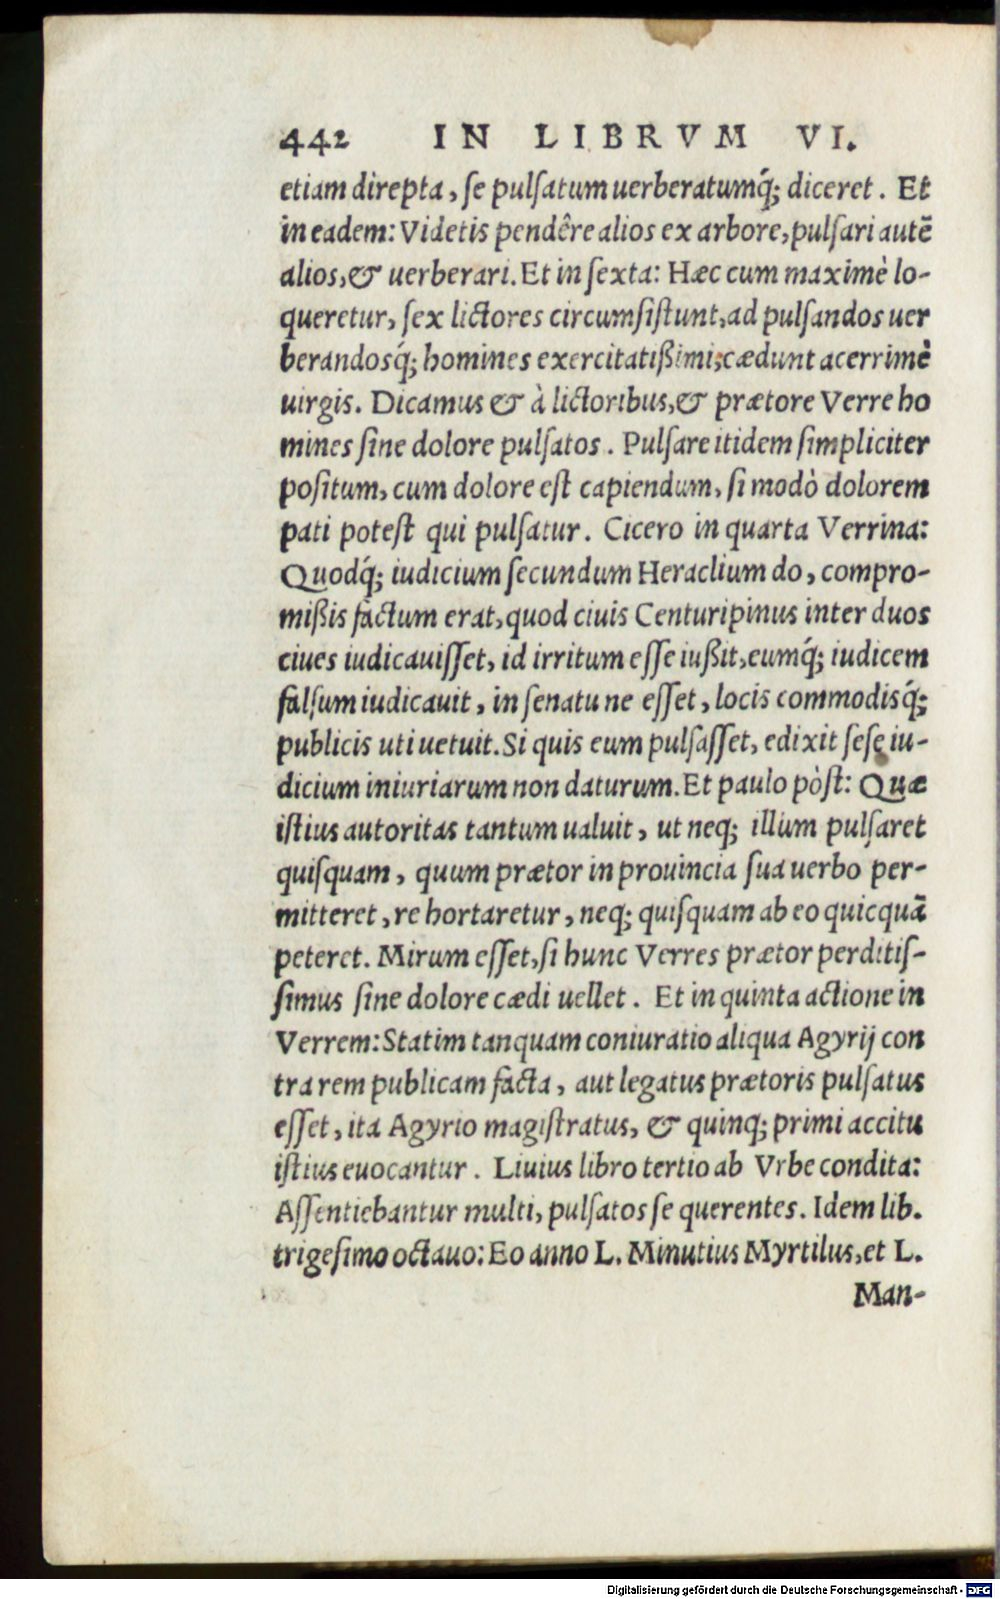 442 IN LIBRVM VI.
etiam direpta, se pulsatum uerberatumq́; diceret. Et
in eadem: Videtis pendêre alios ex arbore, pulsari autē
alios, & uerberari. Et in sexta: Hæc cum maximè lo-
queretur, sex lictores circumsistunt, ad pulsandos uer
berandosq́; homines exercitatißimi; cædunt acerrimè
uirgis. Dicamus & à lictoribus, & prætore Verre ho
mines sine dolore pulsatos. Pulsare itidem simpliciter
positum, cum dolore est capiendum, si modò dolorem
pati potest qui pulsatur. Cicero in quarta Verrina:
Quodq́; iudicium secundum Heraclium do, compro-
mißis factum erat, quod ciuis Centuripinus inter duos
ciues iudicauisset, id irritum esse iußit, eumq́; iudicem
falsum iudicauit, in senatu ne esset, locis commodisq́;
publicis uti uetuit. Si quis eum pulsasset, edixit sese iu-
dicium iniuriarum non daturum. Et paulo pòst: Quæ
istius autoritas tantum ualuit, ut neq; illum pulsaret
quisquam, quum prætor in prouincia sua uerbo per-
mitteret, re hortaretur, neq; quisquam ab eo quicquā
peteret. Mirum esset, si hunc Verres prætor perditis-
simus sine dolore cædi uellet. Et in quinta actione in
Verrem: Statim tanquam coniuratio aliqua Agyrij con
tra rem publicam facta, aut legatus prætoris pulsatus
esset, ita Agyrio magistratus, & quinq; primi accitu
istius euocantur. Liuius libro tertio ab Vrbe condita:
Assentiebantur multi, pulsatos se querentes. Idem lib.
trigesimo octauo: Eo anno L. Minutius Myrtilus, et L.
Man-
Digitalisierung gefördert durch die Deutsche Forschungsgemeinschaft - DFG